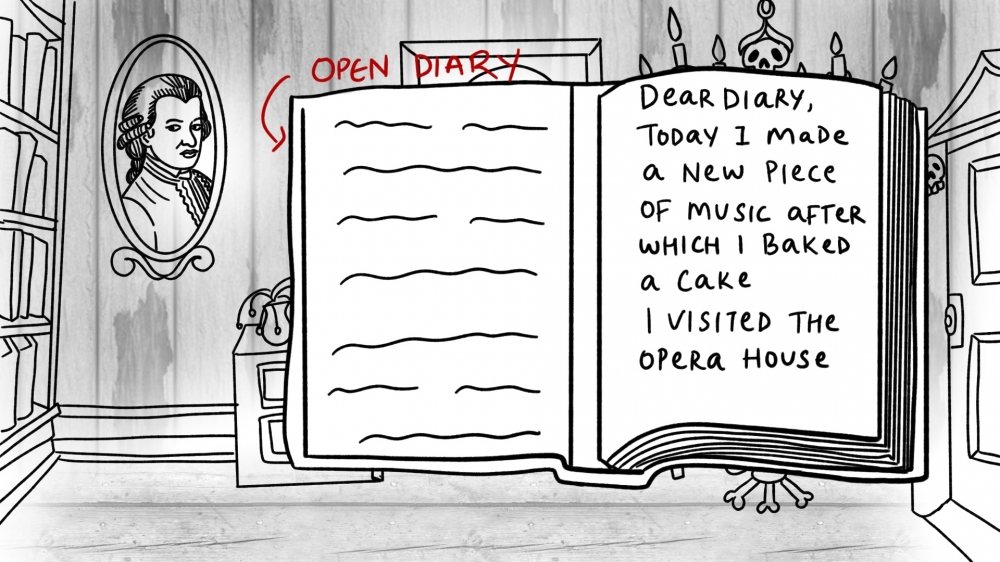 OPEN DIARY
Dear DIARY,
TODAY I made
a New Piece
OF music after
WHICH I Baked
a Cake
I VISITED THE
Opera House